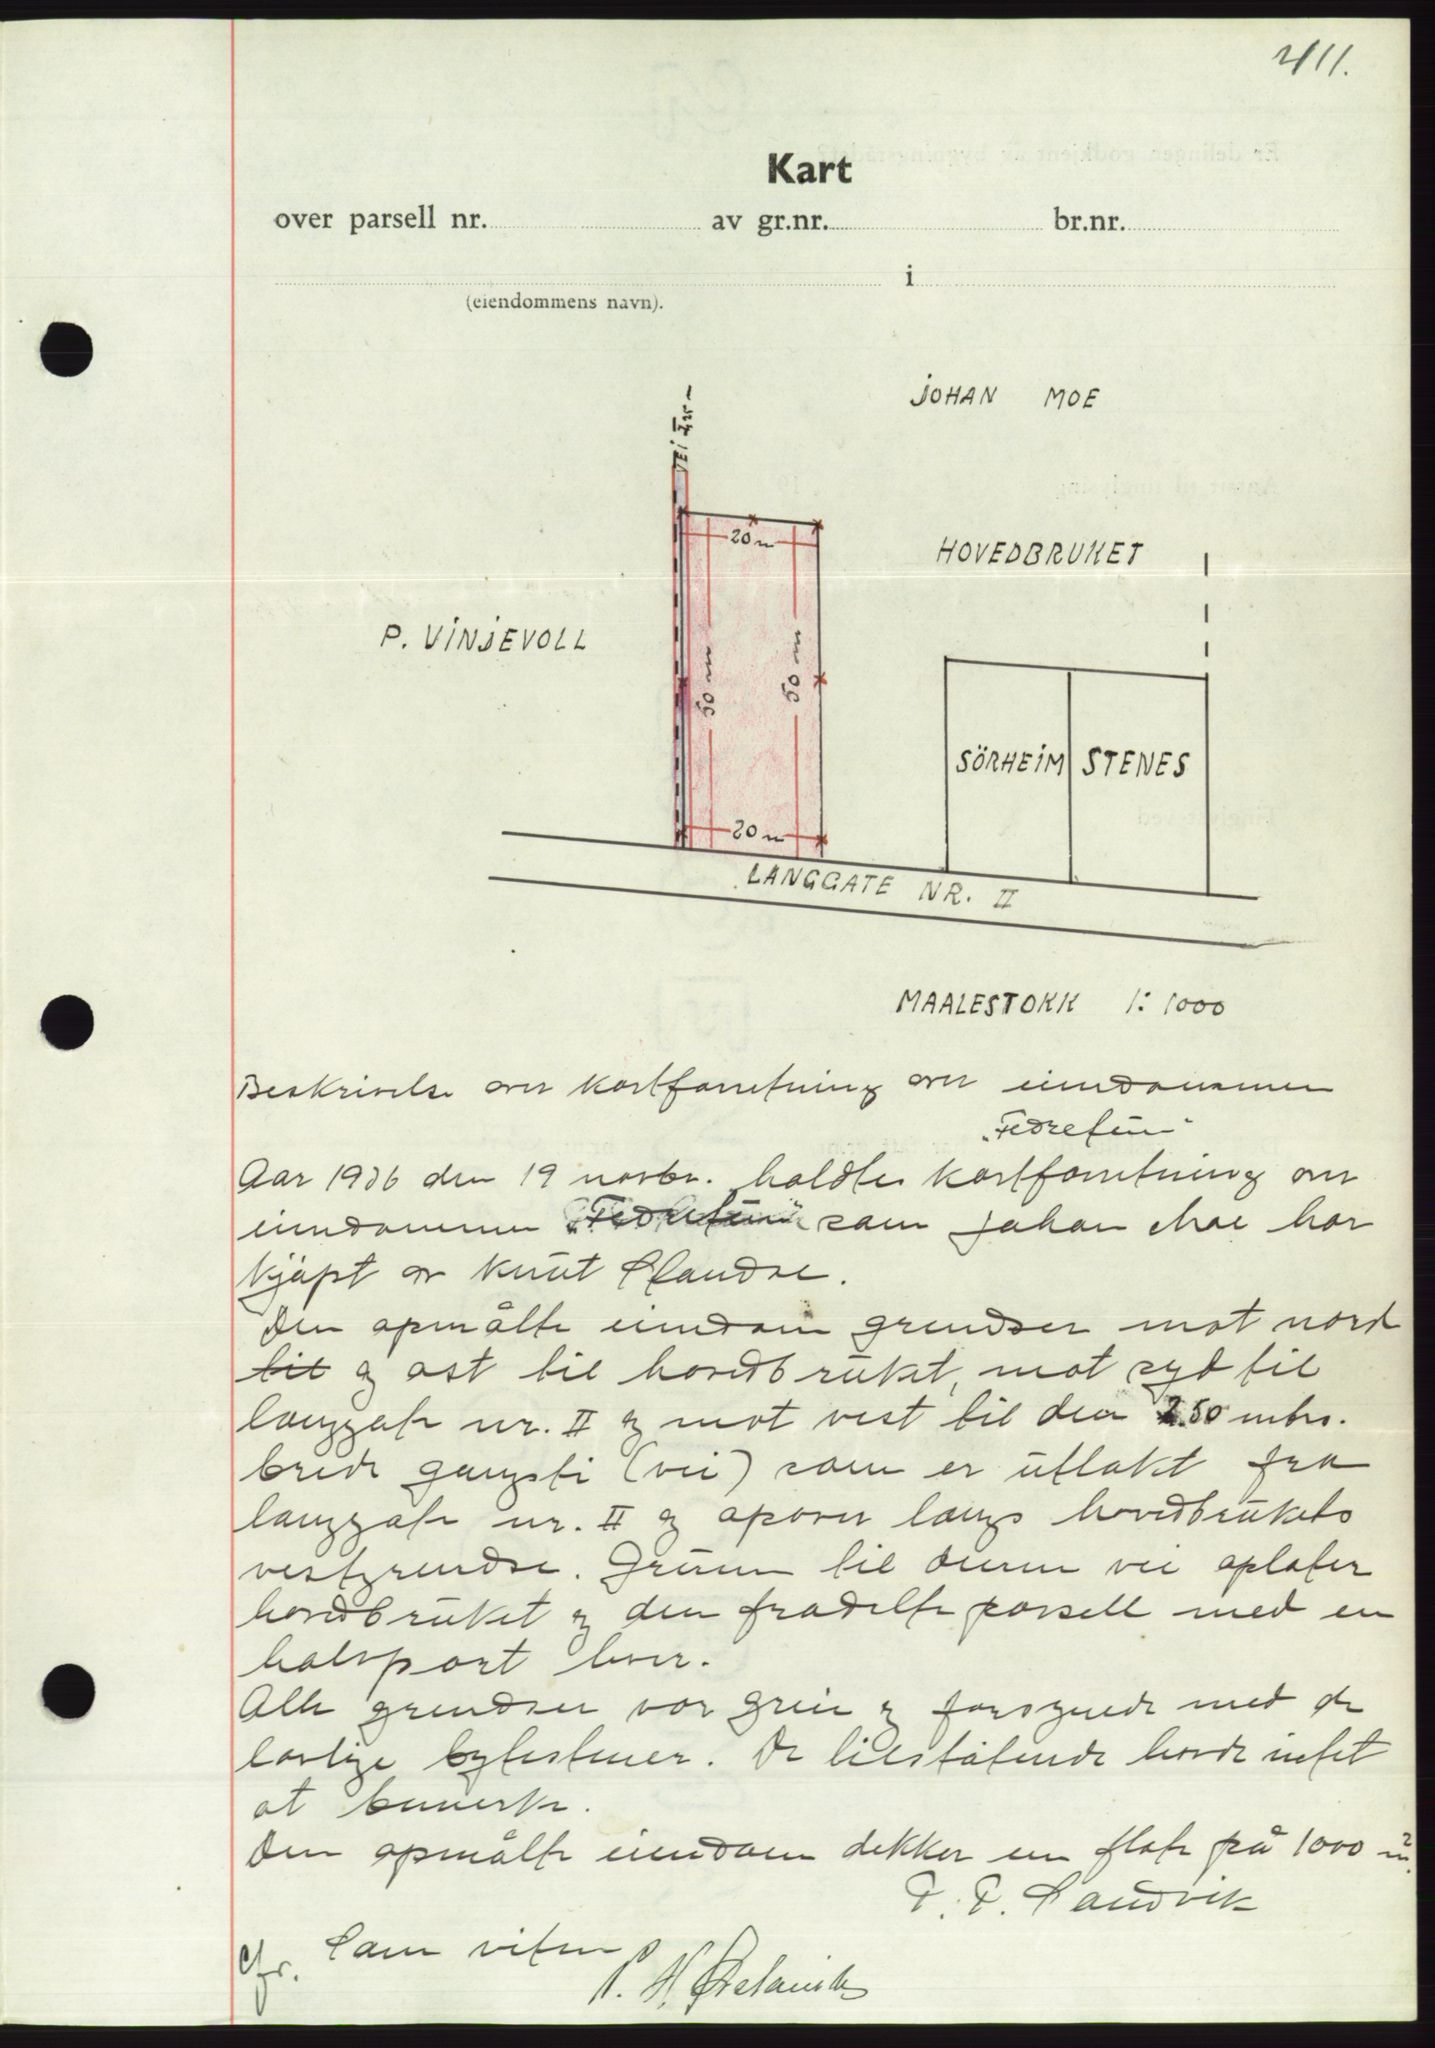 411.
Kart
over parsell nr. av gr.nr. br.nr.
i
(eiendommens navn).
JOHAN MOE
VEI
20 m
HOVEDBRUKET
P. VINJEVOLL
50 m
50 m
SÖRHEIM
STENES
20 m
LANGGATE NR. II
MAALESTOKK 1:1000
Beskrivelse over kartforretning over eiendommen
„Fedretun"
Aar 1936 den 19 novbr. holdtes kartforretning over
eiendommen „Fedretun" som Johan Moe har
kjöpt av Knut
Den opmålte eiendom grendser mot nord
til og øst til hovedbruket, mot syd til
langgate nr. II og mot vest til den 2.50 mtrs.
brede gangsti (vei) som er utlakt fra
langgate nr. II og opover langs hovedbrukets
vestgrendse. Grunn til denne vei oplater
hovedbruket og den fradelte parsell med en
halvpart hver.
Alle grendser var greie og forsynede med de
lovlige bytestener. De tilståtende havde intet
at bemerke.
Den opmålte eiendom dekker en flate på 1000 m².
P. P. Sandvik
Som vitne